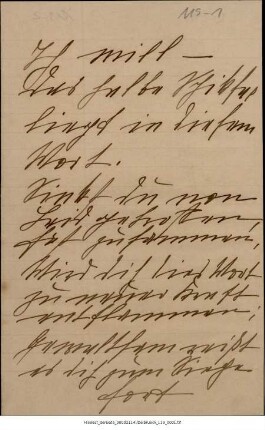 119-1
Ich will –
Das halbe Schicksal
liegt in diesem
Wort.
Sinkst du von
Leid getroffen,
fast zusammen,
Wird dich dies Wort
zu neuer Kraft
entflammen;
Gewaltsam reißt
es dich zum Siege
fort